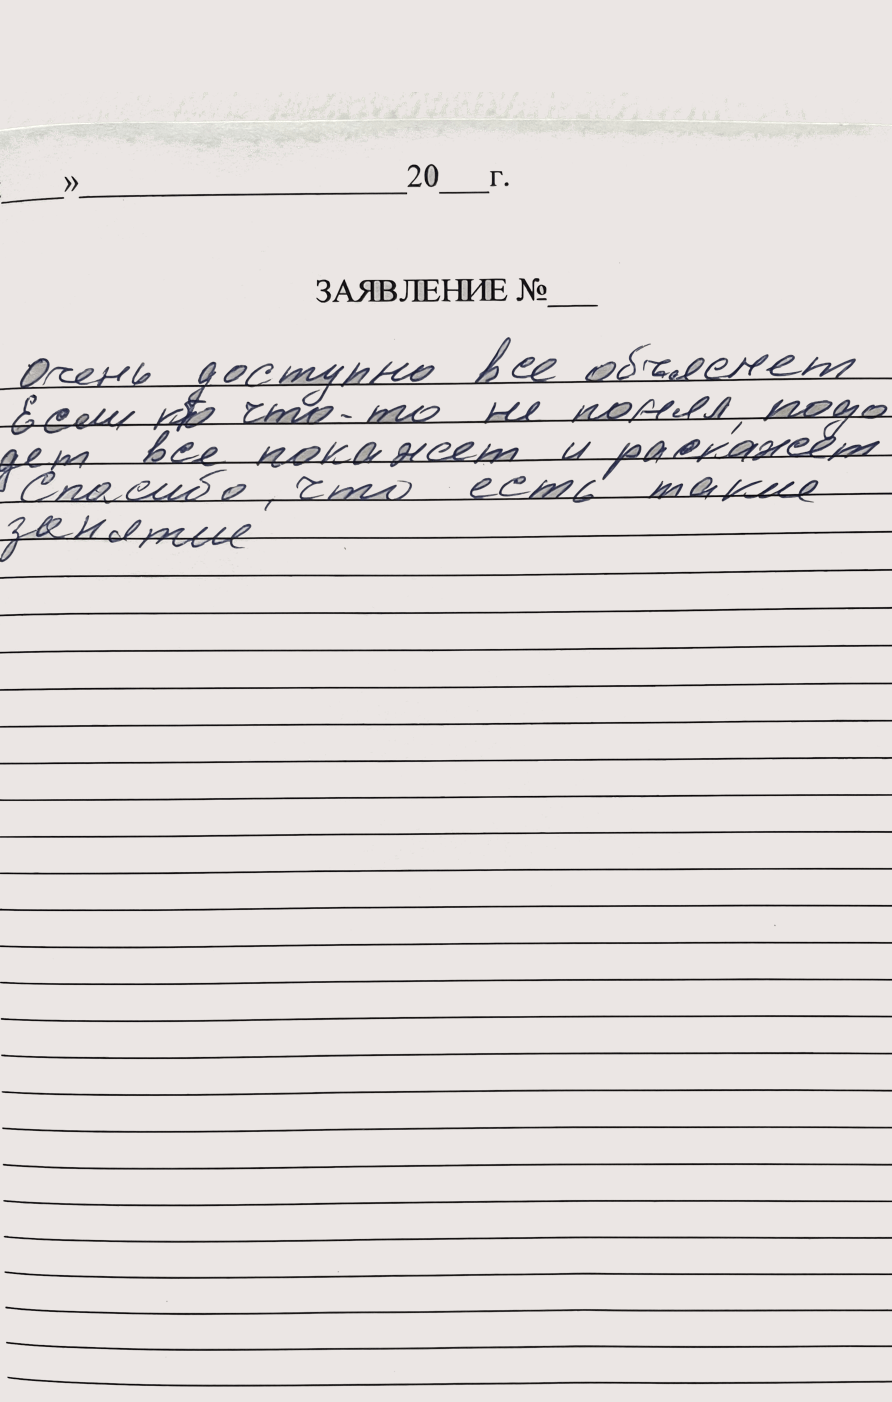 »                20    г.
ЗАЯВЛЕНИЕ №
Очень доступно все объяснет
Если кто что-то не понял, подо
дет все покажет и раскажет
Спасибо, что есть такие
занятие